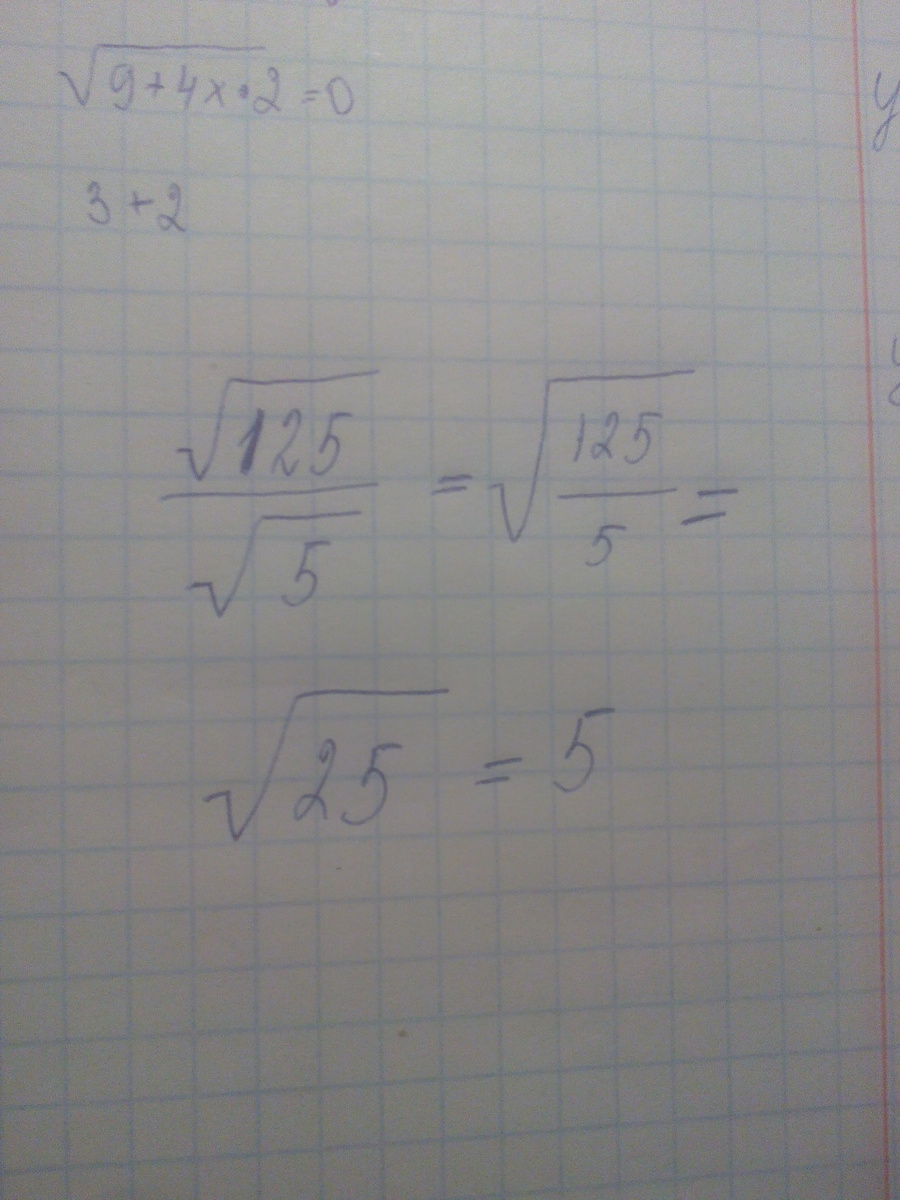 √9+4x·2 = 0
3+2
√125/√5 = √125/5 =
√25 = 5
y